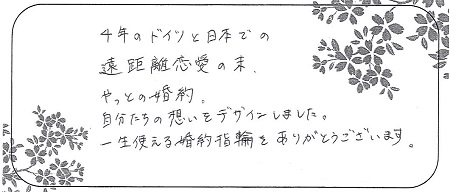 4年のドイツと日本での
遠距離恋愛の末、
やっとの婚約。
自分たちの想いをデザインしました。
一生使える婚約指輪をありがとうございます。